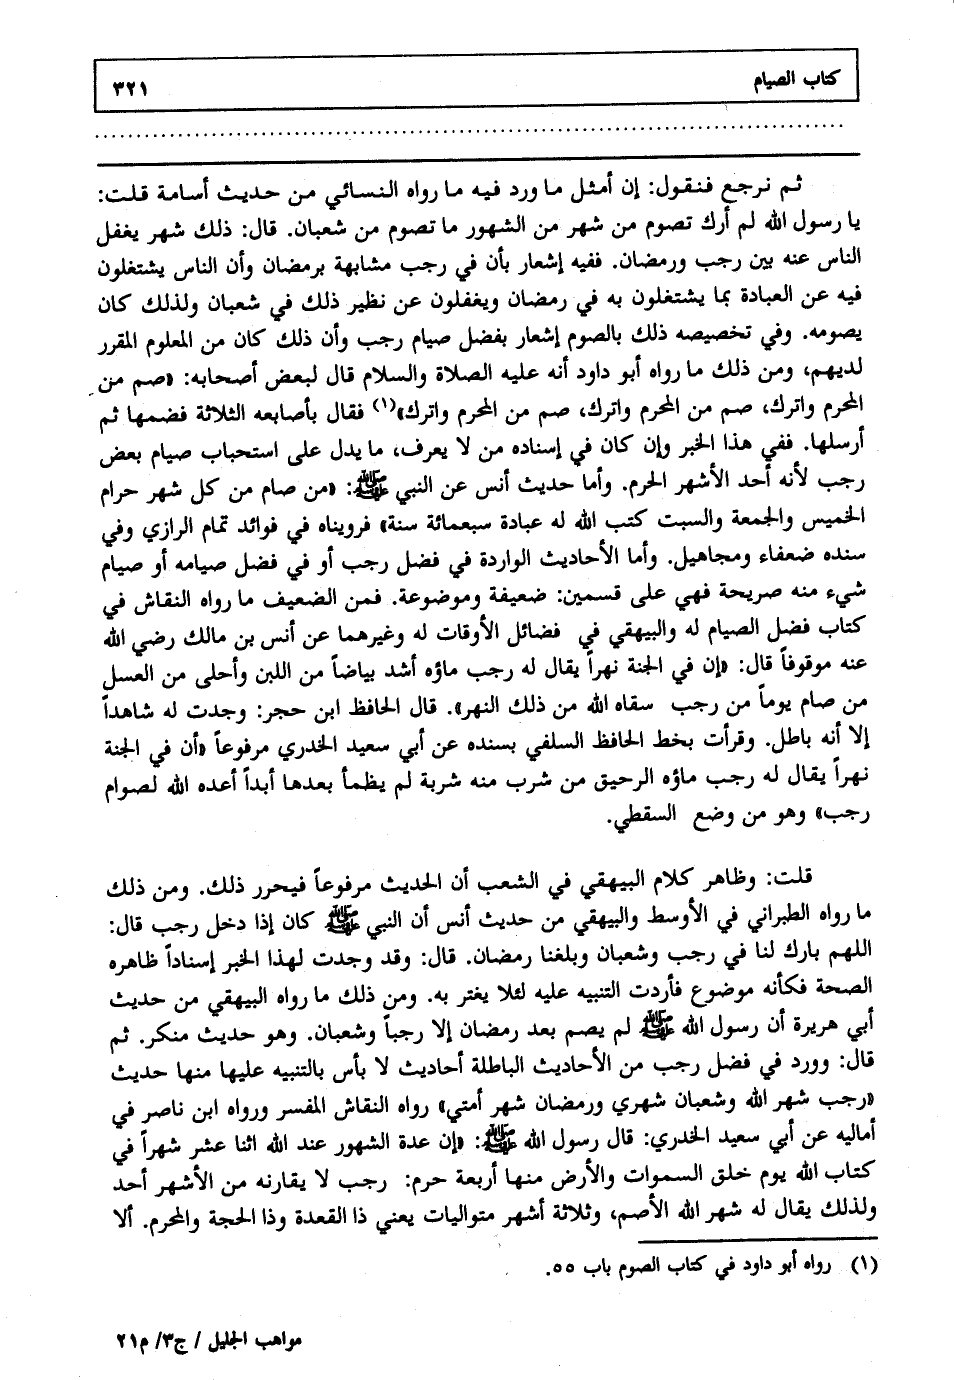 كتاب الصيام ٣٢١
ثم نرجع فنقول: إن أمثل ما ورد فيه ما رواه النسائي من حديث أسامة قلت:
يا رسول الله لم أرك تصوم من شهر من الشهور ما تصوم من شعبان. قال: ذلك شهر يغفل
الناس عنه بين رجب ورمضان. ففيه إشعار بأن في رجب مشابهة برمضان وأن الناس يشتغلون
فيه عن العبادة بما يشتغلون به في رمضان ويغفلون عن نظير ذلك في شعبان ولذلك كان
يصومه. وفي تخصيصه ذلك بالصوم إشعار بفضل صيام رجب وأن ذلك كان من المعلوم المقرر
لديهم، ومن ذلك ما رواه أبو داود أنه عليه الصلاة والسلام قال لبعض أصحابه: «صم من
المحرم واترك، صم من المحرم واترك، صم من المحرم واترك»(١) فقال بأصابعه الثلاثة فضمها ثم
أرسلها. ففي هذا الخبر وإن كان في إسناده من لا يعرف، ما يدل على استحباب صيام بعض
رجب لأنه أحد الأشهر الحرم. وأما حديث أنس عن النبي ﷺ: «من صام من كل شهر حرام
الخميس والجمعة والسبت كتب الله له عبادة سبعمائة سنة» فرويناه في فوائد تمام الرازي وفي
سنده ضعفاء ومجاهيل. وأما الأحاديث الواردة في فضل رجب أو في فضل صيامه أو صيام
شيء منه صريحة فهي على قسمين: ضعيفة وموضوعة. فمن الضعيف ما رواه النقاش في
كتاب فضل الصيام له والبيهقي في فضائل الأوقات له وغيرهما عن أنس بن مالك رضي الله
عنه موقوفاً قال: «إن في الجنة نهراً يقال له رجب ماؤه أشد بياضاً من اللبن وأحلى من العسل
من صام يوماً من رجب سقاه الله من ذلك النهر». قال الحافظ ابن حجر: وجدت له شاهداً
إلا أنه باطل. وقرأت بخط الحافظ السلفي بسنده عن أبي سعيد الخدري مرفوعاً «أن في الجنة
نهراً يقال له رجب ماؤه الرحيق من شرب منه شربة لم يظمأ بعدها أبداً أعده الله لصوام
رجب» وهو من وضع السقطي.
قلت: وظاهر كلام البيهقي في الشعب أن الحديث مرفوعاً فيحرر ذلك. ومن ذلك
ما رواه الطبراني في الأوسط والبيهقي من حديث أنس أن النبي ﷺ كان إذا دخل رجب قال:
اللهم بارك لنا في رجب وشعبان وبلغنا رمضان. قال: وقد وجدت لهذا الخبر إسناداً ظاهره
الصحة فكأنه موضوع فأردت التنبيه عليه لئلا يغتر به. ومن ذلك ما رواه البيهقي من حديث
أبي هريرة أن رسول الله ﷺ لم يصم بعد رمضان إلا رجباً وشعبان. وهو حديث منكر. ثم
قال: وورد في فضل رجب من الأحاديث الباطلة أحاديث لا بأس بالتنبيه عليها منها حديث
«رجب شهر الله وشعبان شهري ورمضان شهر أمتي» رواه النقاش المفسر ورواه ابن ناصر في
أماليه عن أبي سعيد الخدري: قال رسول الله ﷺ: «إن عدة الشهور عند الله اثنا عشر شهراً في
كتاب الله يوم خلق السموات والأرض منها أربعة حرم: رجب لا يقارنه من الأشهر أحد
ولذلك يقال له شهر الله الأصم، وثلاثة أشهر متواليات يعني ذا القعدة وذا الحجة والمحرم. ألا
(١) رواه أبو داود في كتاب الصوم باب ٥٥.
مواهب الجليل / ج٣/ م٢١